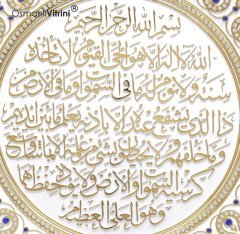 OsmanlıVitrini®
بسم الله الرحمن الرحيم
الله لا إله إلا هو الحي القيوم لا تأخذه
سنة ولا نوم له ما في السموات وما في الأرض من
ذا الذي يشفع عنده إلا بإذنه يعلم ما بين أيديهم
وما خلفهم ولا يحيطون بشيء من علمه إلا بما شاء وسع
كرسيه السموات والأرض ولا يؤده حفظهما
وهو العلي العظيم